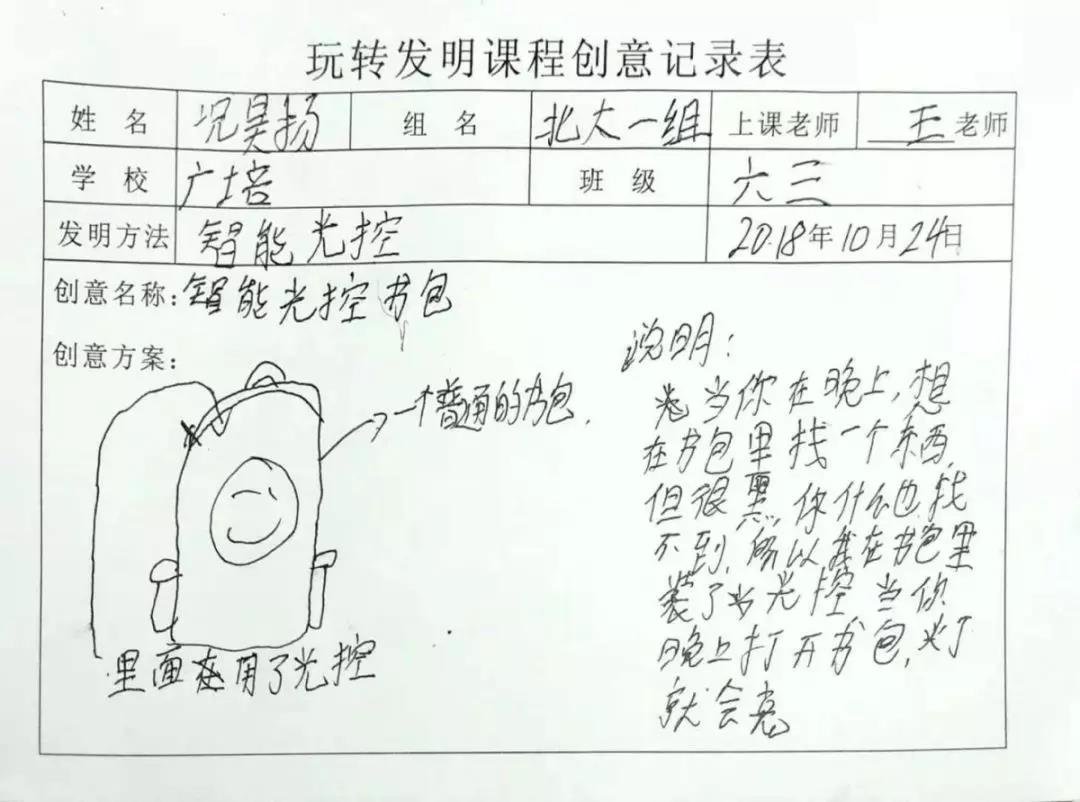 玩转发明课程创意记录表
姓名 况昊扬 组名 北大一组 上课老师 王老师
学校 广培 班级 六三
发明方法 智能光控 2018年10月24日
创意名称:智能光控书包
创意方案:
一个普通的书包.
里面在用了光控
说明:
当你在晚上,想
在书包里找一个东西,
但很黑,你什么也找
不到,所以我在书包里
装了光控,当你
晚上打开书包,灯
就会亮